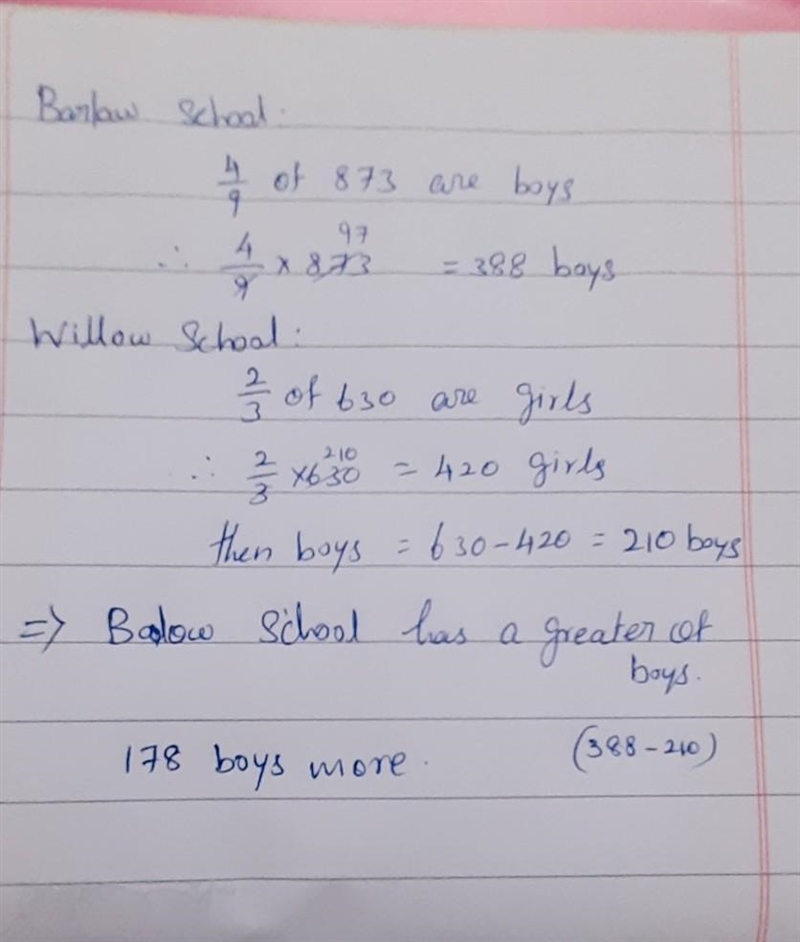 Barlaw School:
4/9 of 873 are boys
97
∴ 4/9 × 873 = 388 boys
Willow School:
2/3 of 630 are girls
210
∴ 2/3 ×630 = 420 girls
then boys = 630-420 = 210 boys
=> Balow School has a greater of
boys.
178 boys more. (388-210)